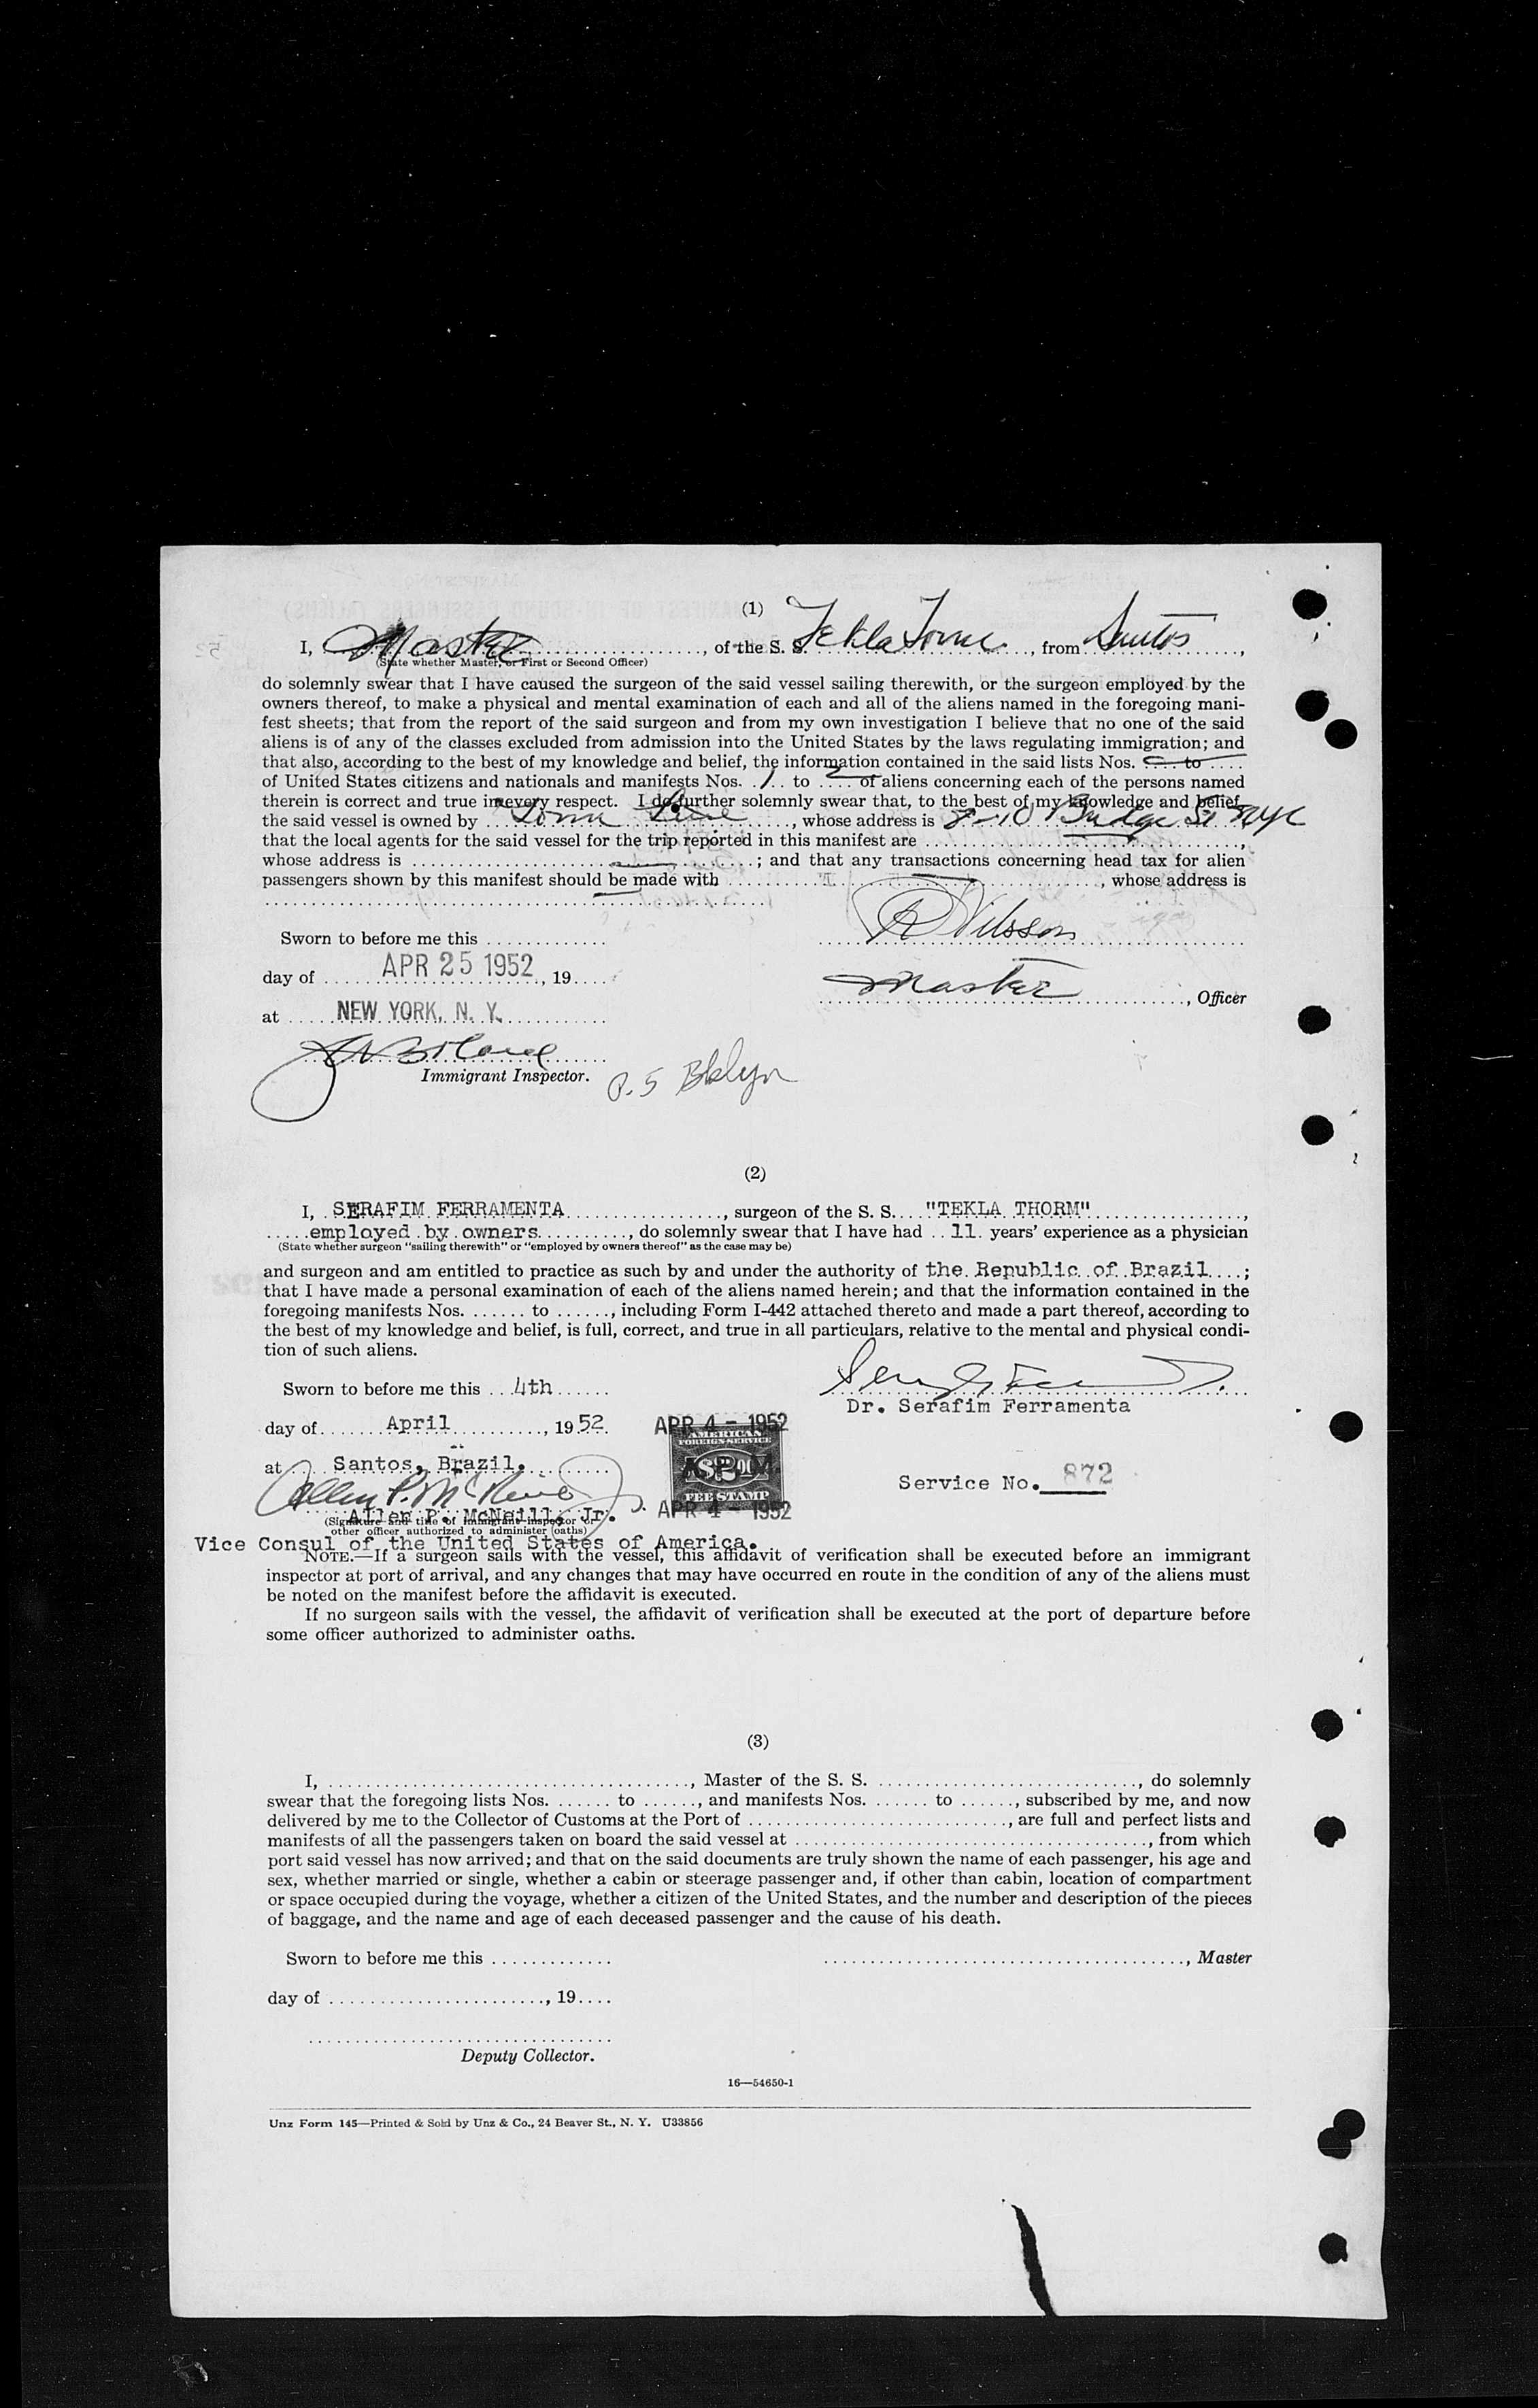 (1)
I, Master, of the S. S. Tekla Torm, from Santos,
(State whether Master, or First or Second Officer)
do solemnly swear that I have caused the surgeon of the said vessel sailing therewith, or the surgeon employed by the
owners thereof, to make a physical and mental examination of each and all of the aliens named in the foregoing mani-
fest sheets; that from the report of the said surgeon and from my own investigation I believe that no one of the said
aliens is of any of the classes excluded from admission into the United States by the laws regulating immigration; and
that also, according to the best of my knowledge and belief, the information contained in the said lists Nos. .... to ....
of United States citizens and nationals and manifests Nos. 1 to 2 of aliens concerning each of the persons named
therein is correct and true in every respect. I do further solemnly swear that, to the best of my knowledge and belief
the said vessel is owned by Torm Line, whose address is 8-10 Bridge St NYC
that the local agents for the said vessel for the trip reported in this manifest are ....,
whose address is ....; and that any transactions concerning head tax for alien
passengers shown by this manifest should be made with ...., whose address is
Sworn to before me this .... R Nilsson
day of APR 25 1952, 19.... Master, Officer
at NEW YORK, N. Y.
Immigrant Inspector. P. 5 Bklyn
(2)
I, SERAFIM FERRAMENTA, surgeon of the S. S. "TEKLA THORM",
employed by owners, do solemnly swear that I have had 11 years' experience as a physician
(State whether surgeon "sailing therewith" or "employed by owners thereof" as the case may be)
and surgeon and am entitled to practice as such by and under the authority of the Republic of Brazil;
that I have made a personal examination of each of the aliens named herein; and that the information contained in the
foregoing manifests Nos. ...... to ......, including Form I-442 attached thereto and made a part thereof, according to
the best of my knowledge and belief, is full, correct, and true in all particulars, relative to the mental and physical condi-
tion of such aliens.
Sworn to before me this 4th
Dr. Serafim Ferramenta
day of April, 1952 APR 4 - 1952
AMERICAN
FOREIGN SERVICE
at Santos, Brazil. $2.00
FEE STAMP
Service No. 872
Allen P. McNeill Jr. APR 4 - 1952
Allen P. McNeill, Jr.
(Signature and title of immigrant inspector or
other officer authorized to administer oaths)
Vice Consul of the United States of America.
NOTE.—If a surgeon sails with the vessel, this affidavit of verification shall be executed before an immigrant
inspector at port of arrival, and any changes that may have occurred en route in the condition of any of the aliens must
be noted on the manifest before the affidavit is executed.
If no surgeon sails with the vessel, the affidavit of verification shall be executed at the port of departure before
some officer authorized to administer oaths.
(3)
I, ...., Master of the S. S. ...., do solemnly
swear that the foregoing lists Nos. ...... to ......, and manifests Nos. ...... to ......, subscribed by me, and now
delivered by me to the Collector of Customs at the Port of ...., are full and perfect lists and
manifests of all the passengers taken on board the said vessel at ...., from which
port said vessel has now arrived; and that on the said documents are truly shown the name of each passenger, his age and
sex, whether married or single, whether a cabin or steerage passenger and, if other than cabin, location of compartment
or space occupied during the voyage, whether a citizen of the United States, and the number and description of the pieces
of baggage, and the name and age of each deceased passenger and the cause of his death.
Sworn to before me this .... ...., Master
day of ...., 19....
Deputy Collector.
16—54650-1
Unz Form 145—Printed & Sold by Unz & Co., 24 Beaver St., N. Y. U33856